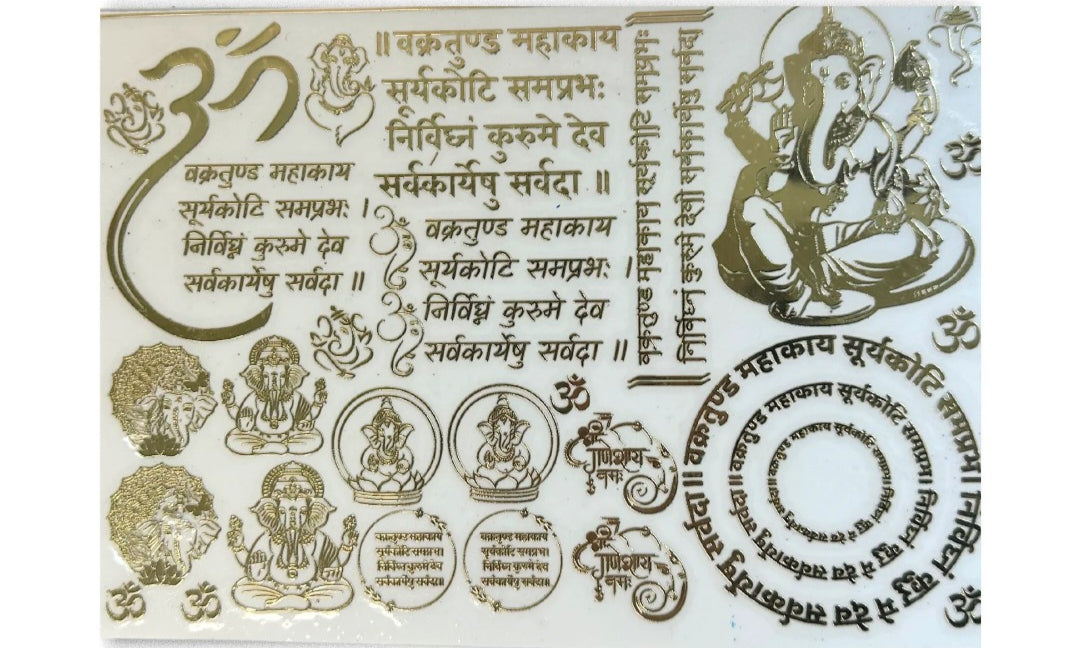 ॐ
॥ वक्रतुण्ड महाकाय
सूर्यकोटि समप्रभः
निर्विघ्नं कुरुमे देव
सर्वकार्येषु सर्वदा ॥
वक्रतुण्ड महाकाय
सूर्यकोटि समप्रभः ।
निर्विघ्नं कुरुमे देव
सर्वकार्येषु सर्वदा ॥
वक्रतुण्ड महाकाय
सूर्यकोटि समप्रभः ।
निर्विघ्नं कुरुमे देव
सर्वकार्येषु सर्वदा ॥
वक्रतुण्ड महाकाय सूर्यकोटि समप्रभः
निर्विघ्नं कुरुमे देवो सर्वकार्येषु सर्वदा
ॐ
ॐ
ॐ
वक्रतुण्ड महाकाय सूर्यकोटि समप्रभ। निर्विघ्नं कुरु मे देव सर्वकार्येषु सर्वदा॥
वक्रतुण्ड महाकाय सूर्यकोटि समप्रभ। निर्विघ्नं कुरु मे देव सर्वकार्येषु सर्वदा॥
वक्रतुण्ड महाकाय सूर्यकोटि समप्रभ। निर्विघ्नं कुरु मे देव सर्वकार्येषु सर्वदा॥
गणेशाय
नमः
वक्रतुण्ड महाकाय
सूर्यकोटि समप्रभ।
निर्विघ्नं कुरुमे देव
सर्वकार्येषु सर्वदा॥
वक्रतुण्ड महाकाय
सूर्यकोटि समप्रभ।
निर्विघ्नं कुरुमे देव
सर्वकार्येषु सर्वदा॥
गणेशाय
नमः
ॐ
ॐ
ॐ